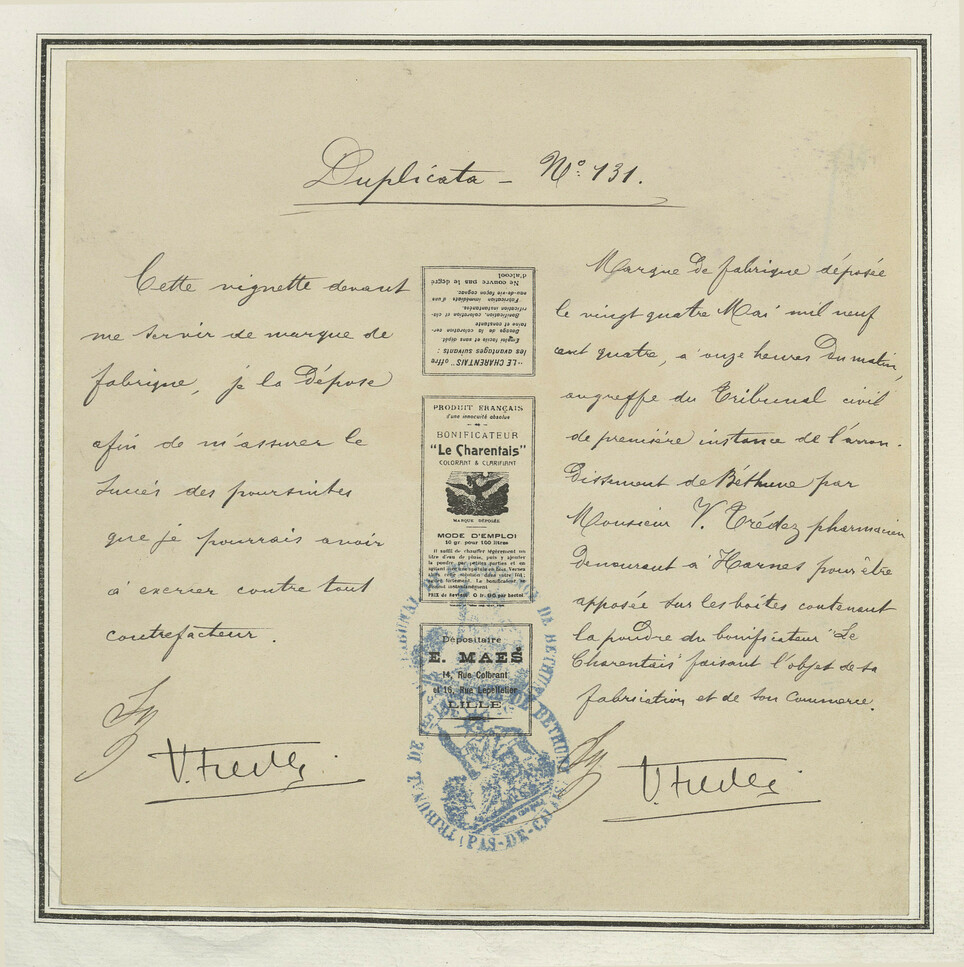 Duplicata - N°: 131.
Cette vignette devant
me servir de marque de
fabrique, je la dépose
afin de m'assurer le
succés des poursuites
que je pourrais avoir
à exercer contre tout
contrefacteur.
V. Trédez
"LE CHARENTAIS" offre
les avantages suivants :
Emploi facile et sans dépôt
Dosage de la coloration cer-
taine et constante
Bonification, coloration et cla-
rification instantanées.
Fabrication immédiate d'une
eau-de-vie façon cognac.
Ne couvre pas le degré
d'alcool
PRODUIT FRANÇAIS
d'une innocuité absolue
BONIFICATEUR
"Le Charentais"
COLORANT & CLARIFIANT
MARQUE DÉPOSÉE
MODE D'EMPLOI
10 gr pour 100 litres
Il suffit de chauffer légèrement un
litre d'eau de pluie, puis y ajouter
la poudre par petites parties et en
PRIX de Revient 0 fr.
Dépositaire
E. MAES
14, Rue Colbrant
et 16, Rue Lepelletier
LILLE
TRIBUNAL DE BETHUNE
(PAS-DE-CALAIS)
Marque de fabrique déposée
le vingt quatre Mai mil neuf
cent quatre, à onze heures du matin,
au greffe du Tribunal civil
de première instance de l'arron-
dissement de Béthune par
Monsieur V. Trédez pharmacien
demeurant à Harnes pour être
apposée sur les boîtes contenant
la poudre du bonificateur "Le
Charentais" faisant l'objet de sa
fabrication et de son commerce.
V. Trédez